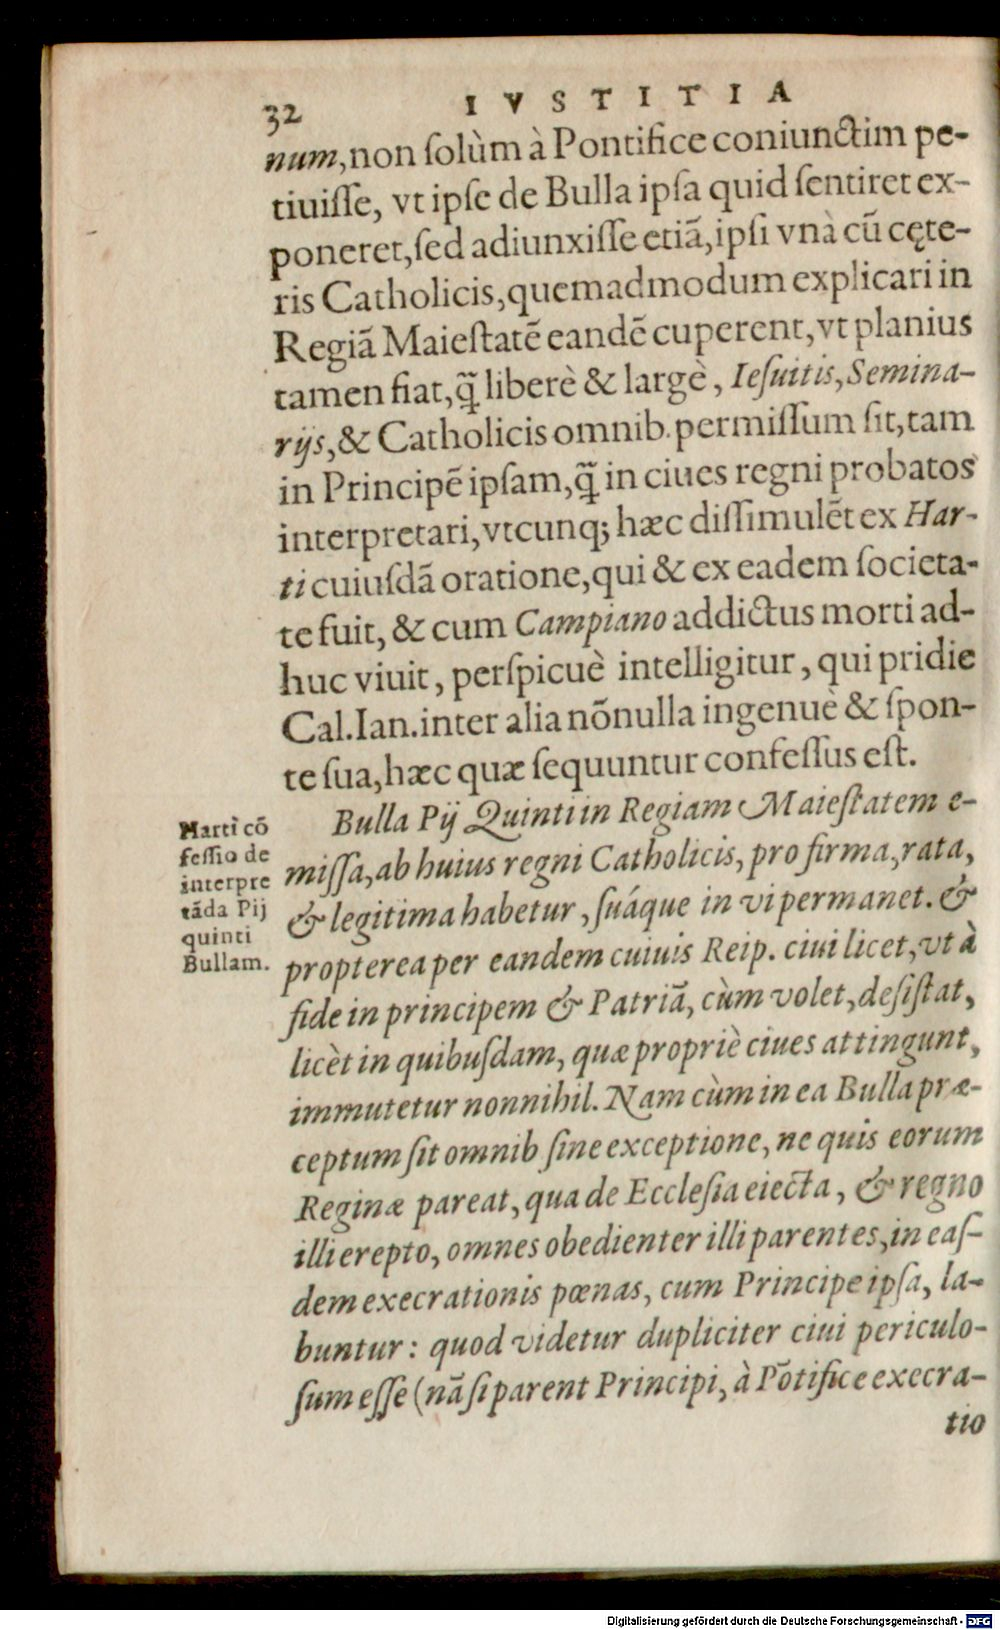 32 IVSTITIA
num, non ſolùm à Pontifice coniunctim pe-
tiuiſſe, vt ipſe de Bulla ipſa quid ſentiret ex-
poneret, ſed adiunxiſſe etiã, ipſi vnà cũ cęte-
ris Catholicis, quemadmodum explicari in
Regiã Maieſtatẽ eandẽ cuperent, vt planius
tamen fiat, q̃ liberè & largè, Ieſuitis, Semina-
rijs, & Catholicis omnib. permiſſum ſit, tam
in Principẽ ipſam, q̃ in ciues regni probatos
interpretari, vtcunq; hæc diſſimulẽt ex Har-
ti cuiuſdã oratione, qui & ex eadem ſocieta-
te fuit, & cum Campiano addictus morti ad-
huc viuit, perſpicuè intelligitur, qui pridie
Cal. Ian. inter alia nõnulla ingenuè & ſpon-
te ſua, hæc quæ ſequuntur confeſſus eſt.
Marti cõ
feſſio de
interpre
tãda Pij
quinti
Bullam.
Bulla Pij Quinti in Regiam Maieſtatem e-
miſſa, ab huius regni Catholicis, pro firma, rata,
& legitima habetur, ſuáque in vi permanet. &
propterea per eandem cuiuis Reip. ciui licet, vt à
fide in principem & Patriã, cùm volet, deſiſtat,
licèt in quibuſdam, quæ propriè ciues attingunt,
immutetur nonnihil. Nam cùm in ea Bulla præ-
ceptum ſit omnib ſine exceptione, ne quis eorum
Reginæ pareat, qua de Eccleſia eiecta, & regno
illi erepto, omnes obedienter illi parentes, in eaſ-
dem execrationis pœnas, cum Principe ipſa, la-
buntur: quod videtur dupliciter ciui periculo-
ſum eſſe (nã ſi parent Principi, à Põtifice execra-
tio
Digitalisierung gefördert durch die Deutsche Forschungsgemeinschaft - DFG